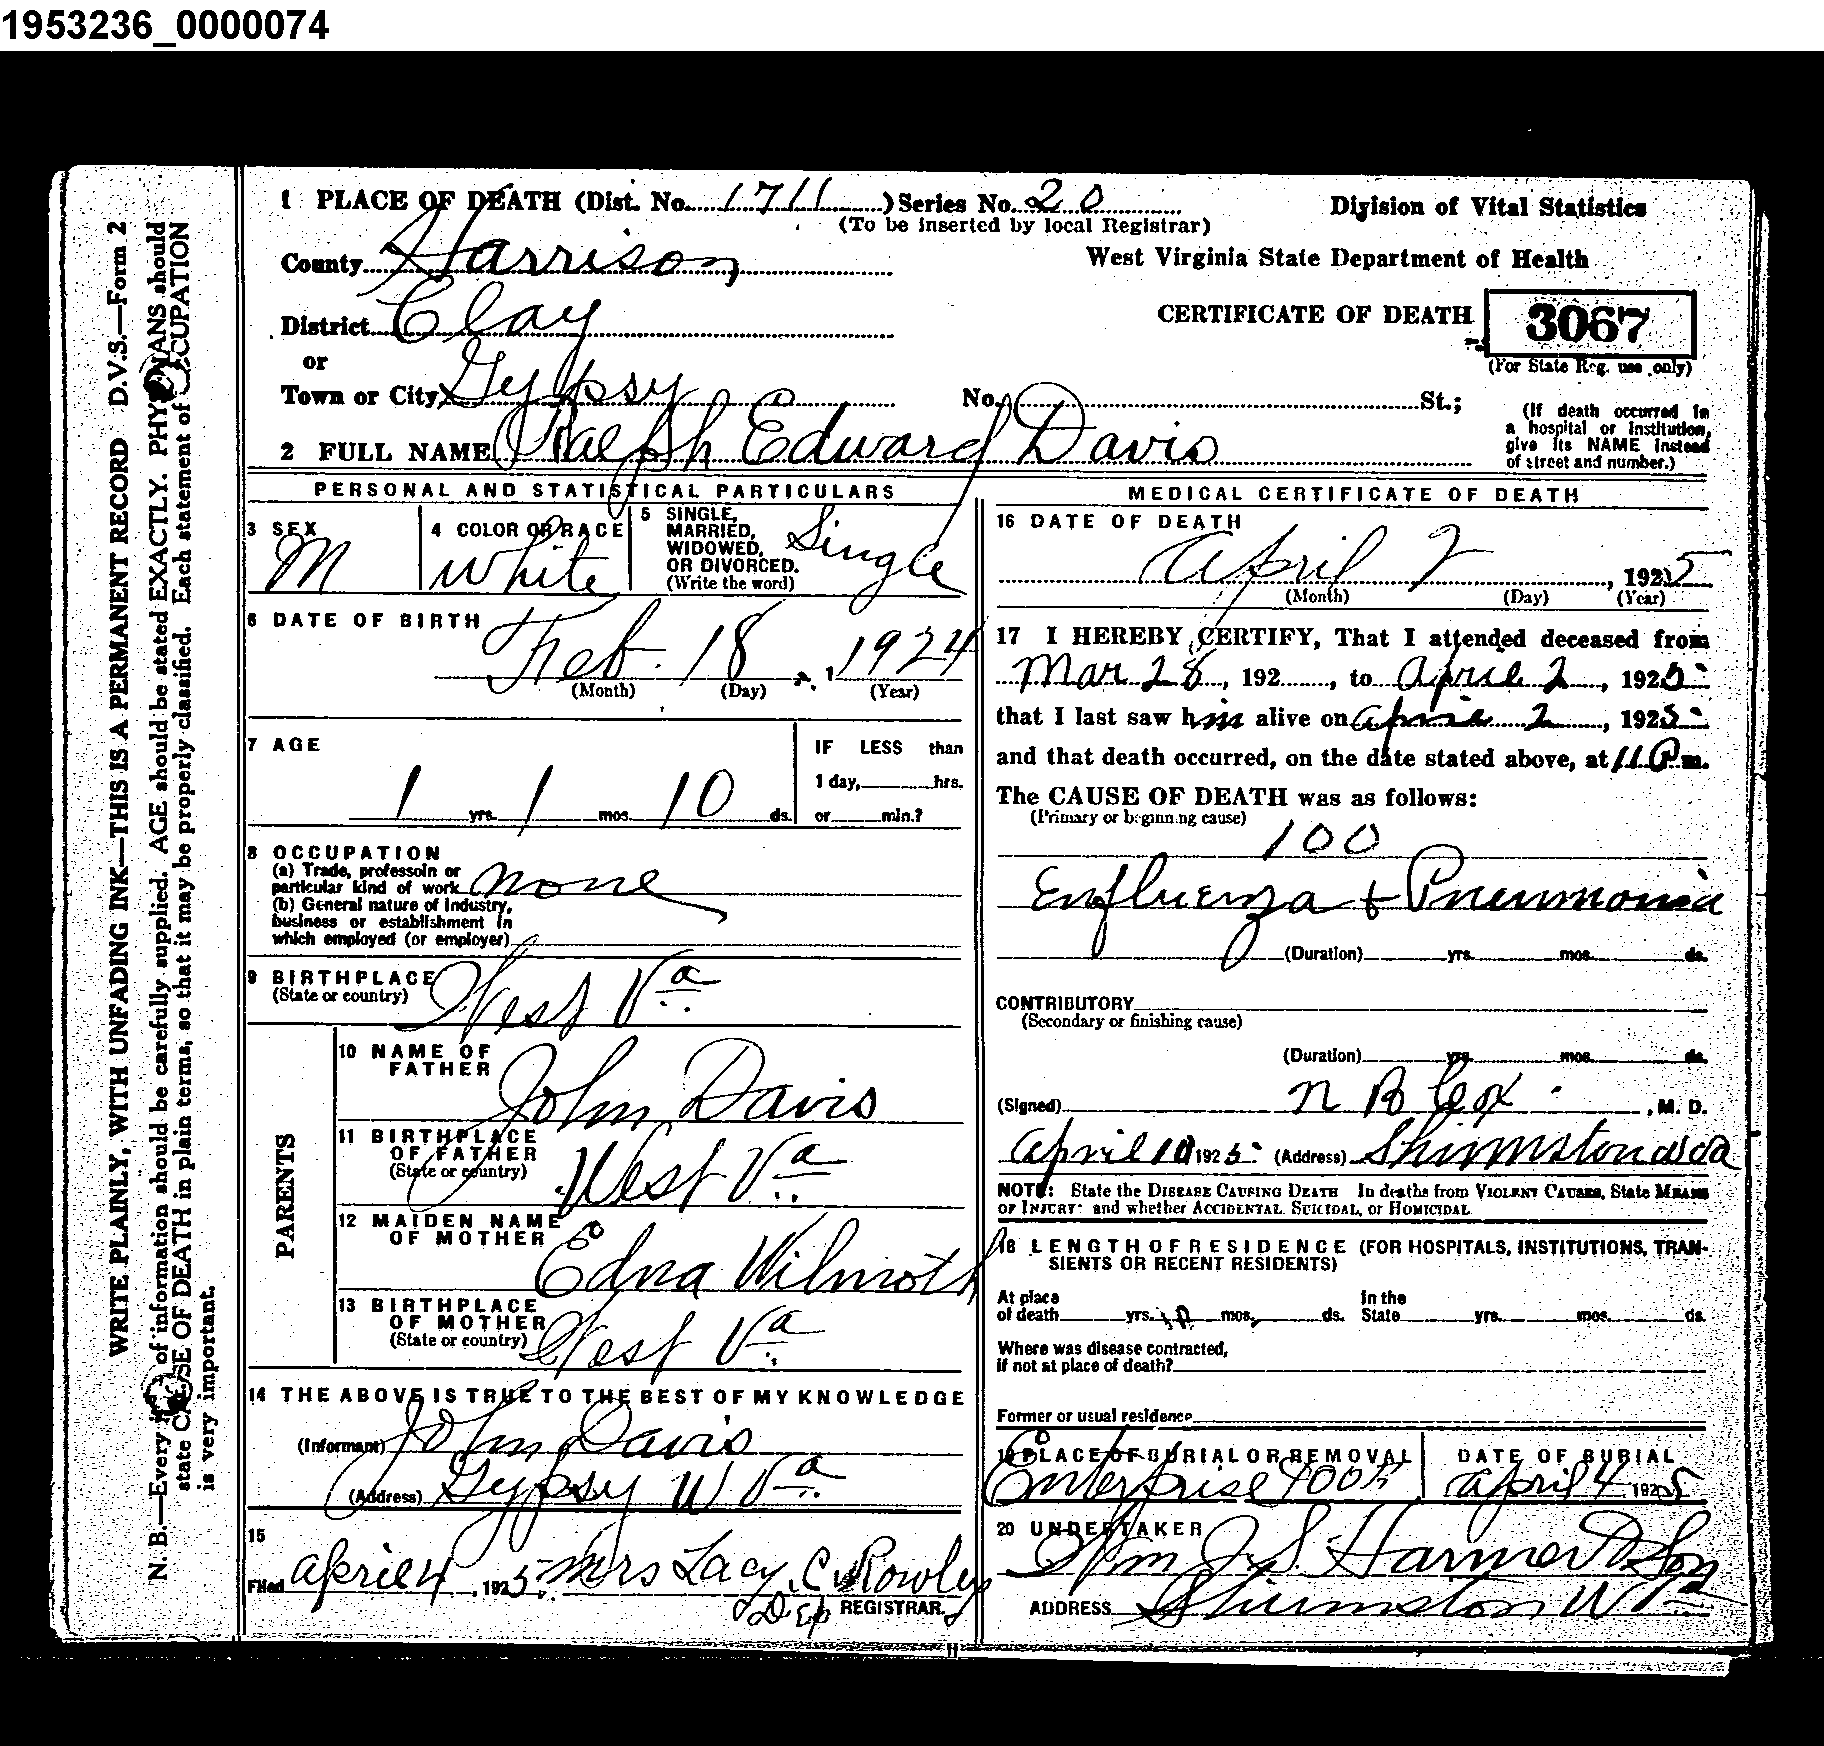 1953236_0000074
1 PLACE OF DEATH (Dist. No. 1711 ) Series No. 20
(To be inserted by local Registrar)
Division of Vital Statistics
County Harrison
West Virginia State Department of Health
District Clay
CERTIFICATE OF DEATH 3067
or
(For State Reg. use only)
Town or City Gypsy No. St.;
(If death occurred in
a hospital or institution,
give its NAME instead
of street and number.)
2 FULL NAME Ralph Edward Davis
PERSONAL AND STATISTICAL PARTICULARS
3 SEX M
4 COLOR OR RACE White
5 SINGLE,
MARRIED,
WIDOWED,
OR DIVORCED.
(Write the word)
Single
6 DATE OF BIRTH
Feb. 18, 1924
(Month) (Day) (Year)
7 AGE
1 yrs. 1 mos. 10 ds.
IF LESS than
1 day, hrs.
or min.?
8 OCCUPATION
(a) Trade, professoin or
particular kind of work none
(b) General nature of Industry,
business or establishment in
which employed (or employer)
9 BIRTHPLACE
(State or country) West Va
PARENTS
10 NAME OF
FATHER John Davis
11 BIRTHPLACE
OF FATHER
(State or country) West Va
12 MAIDEN NAME
OF MOTHER Edna Wilmoth
13 BIRTHPLACE
OF MOTHER
(State or country) West Va
14 THE ABOVE IS TRUE TO THE BEST OF MY KNOWLEDGE
(Informant) John Davis
(Address) Gypsy W Va
15
Filed April 4, 1925. Mrs Lacy C. Rowley
Dep REGISTRAR.
MEDICAL CERTIFICATE OF DEATH
16 DATE OF DEATH
April 2, 1925
(Month) (Day) (Year)
17 I HEREBY CERTIFY, That I attended deceased from
Mar 28, 192 , to April 2, 1925
that I last saw him alive on April 2, 1925
and that death occurred, on the date stated above, at 11 P m.
The CAUSE OF DEATH was as follows:
(Primary or beginning cause)
100
Enfluenza + Pneumonia
(Duration) yrs. mos. ds.
CONTRIBUTORY
(Secondary or finishing cause)
(Duration) yrs. mos. ds.
(Signed) N B Cox , M. D.
April 10 1925 (Address) Shinnston W Va
NOTE: State the DISEASE CAUSING DEATH In deaths from VIOLENT CAUSES, State MEANS
OF INJURY: and whether ACCIDENTAL, SUICIDAL, or HOMICIDAL
18 LENGTH OF RESIDENCE (FOR HOSPITALS, INSTITUTIONS, TRAN-
SIENTS OR RECENT RESIDENTS)
At place In the
of death yrs. 10 mos. ds. State yrs. mos. ds.
Where was disease contracted,
if not at place of death?
Former or usual residence
19 PLACE OF BURIAL OR REMOVAL
Enterprise
DATE OF BURIAL
April 4 1925
20 UNDERTAKER
J. S. Harmer & Son
ADDRESS Shinnston W Va
WRITE PLAINLY, WITH UNFADING INK—THIS IS A PERMANENT RECORD D.V.S.—Form 2
N. B.—Every of information should be carefully supplied. AGE should be stated EXACTLY. should
state CAUSE OF DEATH in plain terms, so that it may be properly classified. Each statement of OCCUPATION
is very important.